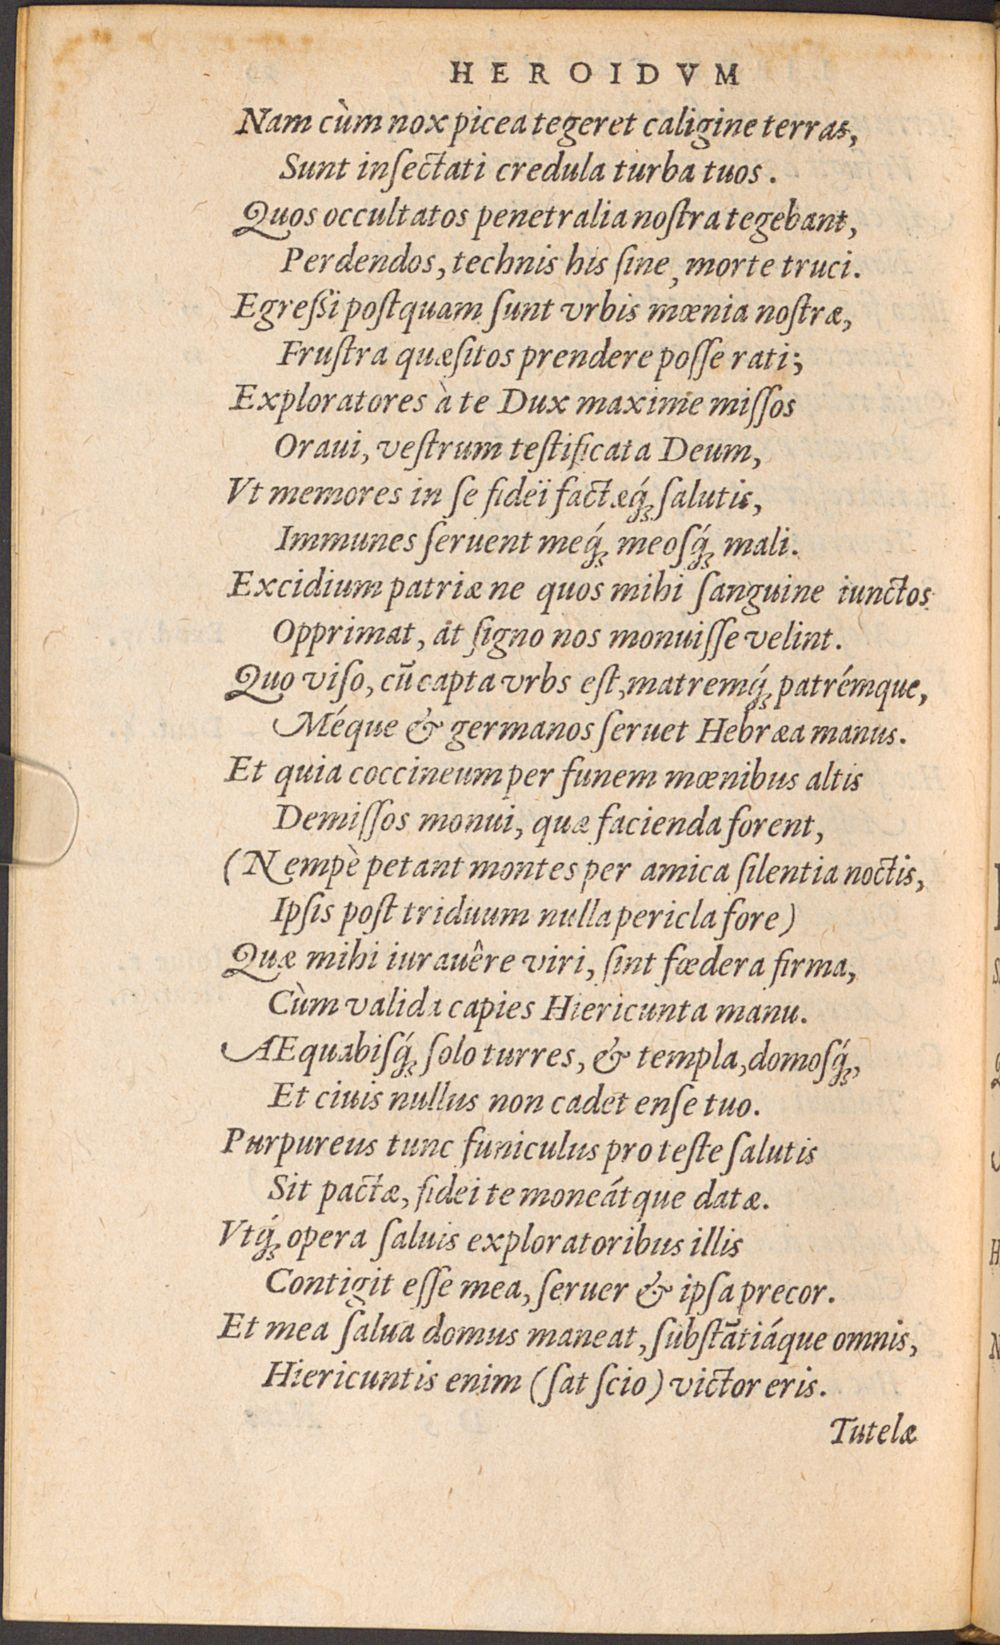 HEROIDVM
Nam cùm nox picea tegeret caligine terras,
Sunt inſectati credula turba tuos.
Quos occultatos penetralia noſtra tegebant,
Perdendos, technis his ſine, morte truci.
Egreßi poſtquam ſunt vrbis mœnia noſtræ,
Fruſtra quæſitos prendere poſſe rati;
Exploratores à te Dux maxime miſſos
Oraui, veſtrum teſtificata Deum,
Vt memores in ſe fideï factæq́ꝫ ſalutis,
Immunes ſeruent meq́ꝫ meoſq́ꝫ mali.
Excidium patriæ ne quos mihi ſanguine iunctos
Opprimat, at ſigno nos monuiſſe velint.
Quo viſo, cū capta vrbs eſt, matremq́ꝫ patrémque,
Méque & germanos ſeruet Hebræa manus.
Et quia coccineum per funem mœnibus altis
Demiſſos monui, quæ facienda forent,
(Nempè petant montes per amica ſilentia noctis,
Ipſis poſt triduum nulla pericla fore)
Quæ mihi iurauêre viri, ſint fœdera firma,
Cùm valida capies Hiericunta manu.
AEquabiſq́ꝫ ſolo turres, & templa, domoſq́ꝫ,
Et ciuis nullus non cadet enſe tuo.
Purpureus tunc funiculus pro teſte ſalutis
Sit pactæ, fidei te moneátque datæ.
Vtq́ꝫ opera ſaluis exploratoribus illis
Contigit eſſe mea, ſeruer & ipſa precor.
Et mea ſalua domus maneat, ſubſtātiáque omnis,
Hiericuntis enim (ſat ſcio) victor eris.
Tutelæ